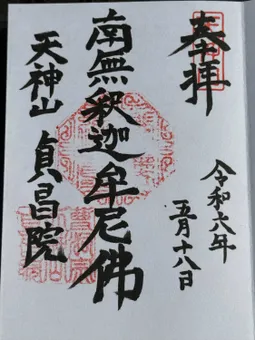 奉拝
令和六年
五月十八日
南無釋迦牟尼佛
天神山
貞昌院